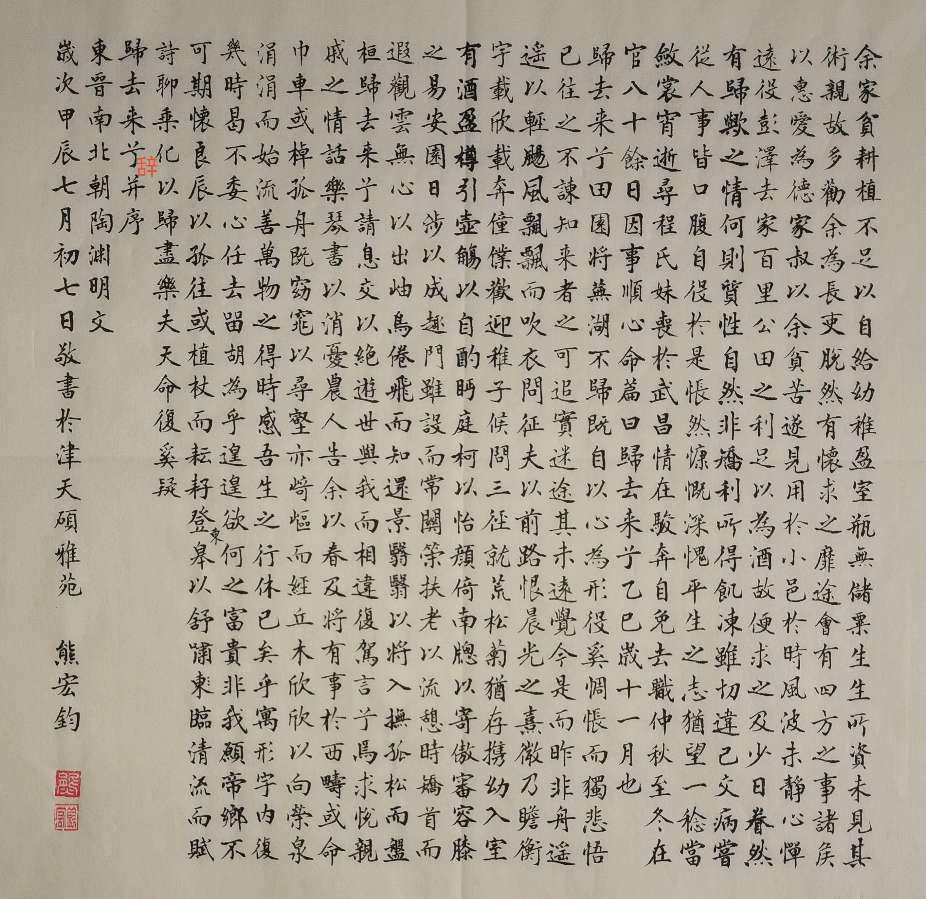 余家貧耕植不足以自給幼稚盈室瓶無儲粟生生所資未見其
術親故多勸余為長吏脫然有懷求之靡途會有四方之事諸侯
以惠愛為德家叔以余貧苦遂見用於小邑於時風波未靜心憚
遠役彭澤去家百里公田之利足以為酒故便求之及少日眷然
有歸歟之情何則質性自然非矯利所得飢凍雖切違己交病嘗
從人事皆口腹自役於是悵然慷慨深愧平生之志猶望一稔當
斂裳宵逝尋程氏妹喪於武昌情在駿奔自免去職仲秋至冬在
官八十餘日因事順心命篇曰歸去来兮乙巳歲十一月也
歸去来兮田園將蕪湖不歸既自以心為形役奚惆悵而獨悲悟
已往之不諫知来者之可追實迷途其未遠覺今是而昨非舟遥
遥以輕颺風飄飄而吹衣問征夫以前路恨晨光之熹微乃瞻衡
宇載欣載奔僮僕歡迎稚子候問三徑就荒松菊猶存携幼入室
有酒盈樽引壺觴以自酌眄庭柯以怡顏倚南牎以寄傲審容膝
之易安園日涉以成趣門雖設而常關策扶老以流憩時矯首而
遐觀雲無心以出岫鳥倦飛而知還景翳翳以將入撫孤松而盤
桓歸去来兮請息交以絕遊世與我而相違復駕言兮焉求悅親
戚之情話樂琴書以消憂農人告余以春及將有事於西疇或命
巾車或棹孤舟既窈窕以尋壑亦崎嶇而經丘木欣欣以向榮泉
涓涓而始流善萬物之得時感吾生之行休已矣乎寓形字内復
幾時曷不委心任去留胡為乎遑遑欲何之富貴非我願帝鄉不
可期懷良辰以孤往或植杖而耘耔登東皋以舒嘯東臨清流而賦
詩聊乘化以歸盡樂夫天命復奚疑
歸去来兮辞并序
東晋南北朝陶渊明文
歲次甲辰七月初七日敬書於津天碩雅苑 熊宏鈞